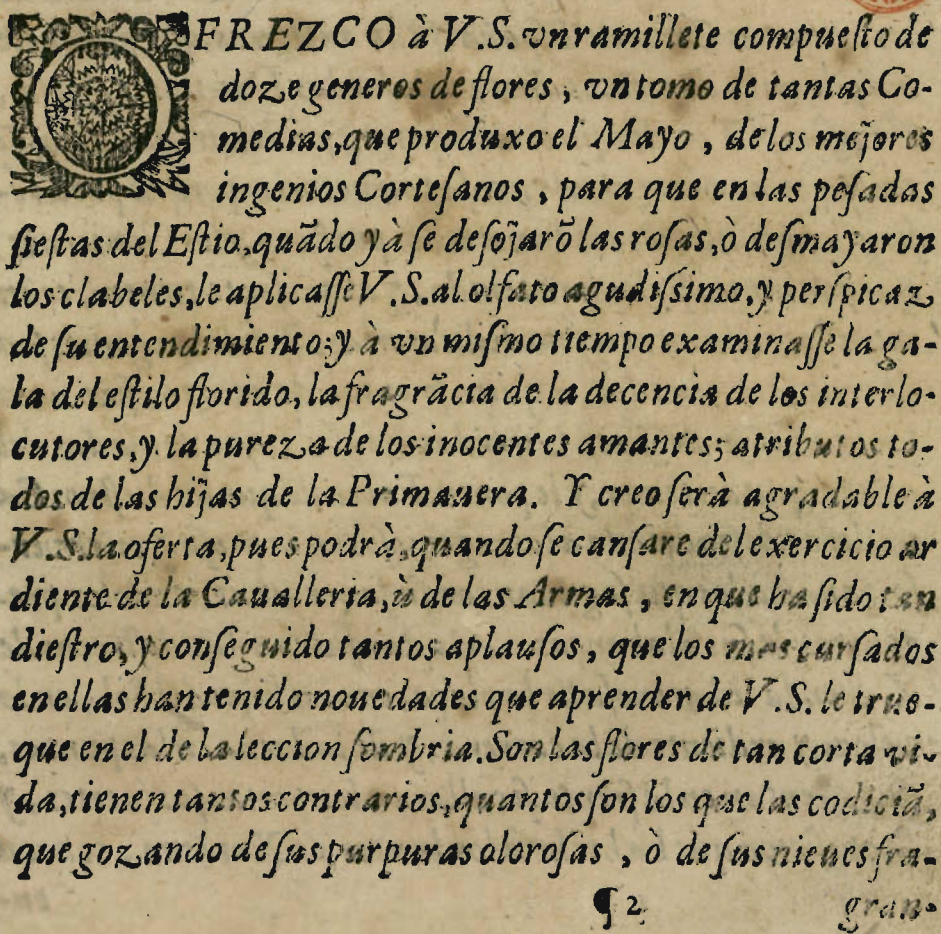 OFREZCO à V.S. vn ramillete compuesto de
doze generos de flores, vn tomo de tantas Co-
medias, que produxo el Mayo, de los mejores
ingenios Cortesanos, para que en las pesadas
siestas del Estio, quãdo yà se desojarõ las rosas, ò desmayaron
los clabeles, le aplicasse V.S. al olfato agudissimo, y perspicaz
de su entendimiento; y à vn mismo tiempo examinasse la ga-
la del estilo florido, la fragrãcia de la decencia de los interlo-
cutores, y la pureza de los inocentes amantes; atributos to-
dos de las hijas de la Primauera. Y creo serà agradable à
V.S. la oferta, pues podrà, quando se cansare del exercicio ar
diente de la Caualleria, ù de las Armas, en que ha sido tan
diestro, y conseguido tantos aplausos, que los mas cursados
en ellas han tenido nouedades que aprender de V.S. le true-
que en el de la leccion sombria. Son las flores de tan corta vi-
da, tienen tantos contrarios, quantos son los que las codiciã,
que gozando de sus purpuras olorosas, ò de sus nieues fra-
¶ 2 gran-